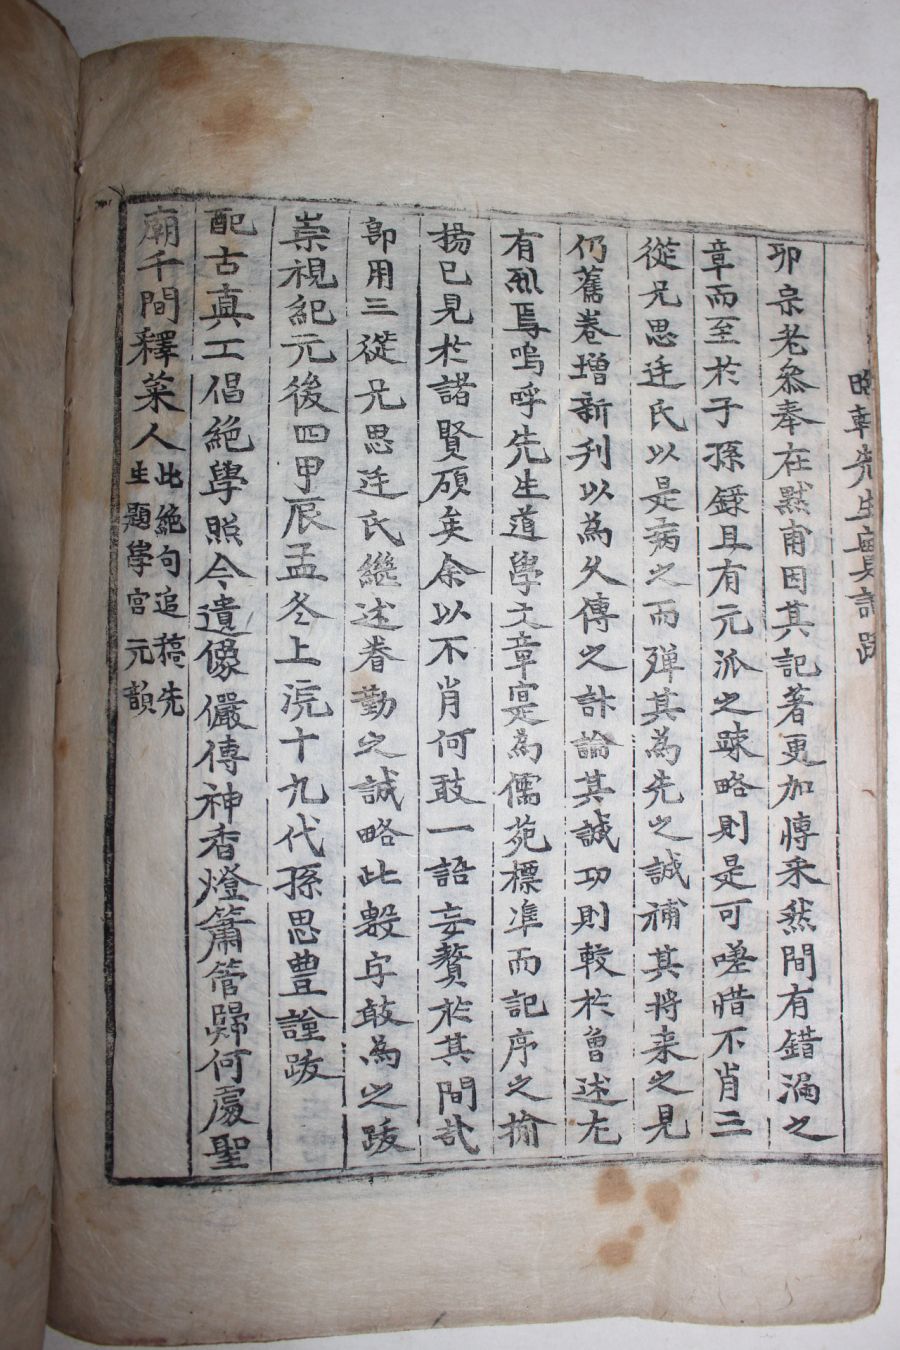 晦軒先生實記跋
卯宗老參奉在黙甫因其記著更加慱采然間有錯漏之
章而至於子孫錄且有元派之踈略則是可嗟惜不肖三
從兄思廷氏以是病之而殫其為先之誠補其將来之見
仍舊卷增新刋以為久傳之計論其誠功則較於曽述尤
有烈焉嗚呼先生道學文章寔為儒苑標凖而記序之揄
揚已見於諸賢碩矣余以不肖何敢一語妄贅於其間哉
郎用三從兄思廷氏繼述眷勤之誠略此數字敢為之跋
崇禎紀元後四甲辰孟冬上浣十九代孫思豊謹跋
配古真工倡絶學照今遺像儼傳神香燈簫管歸何處聖
廟千間釋菜人此絶句追稿先
生題學宮元韻